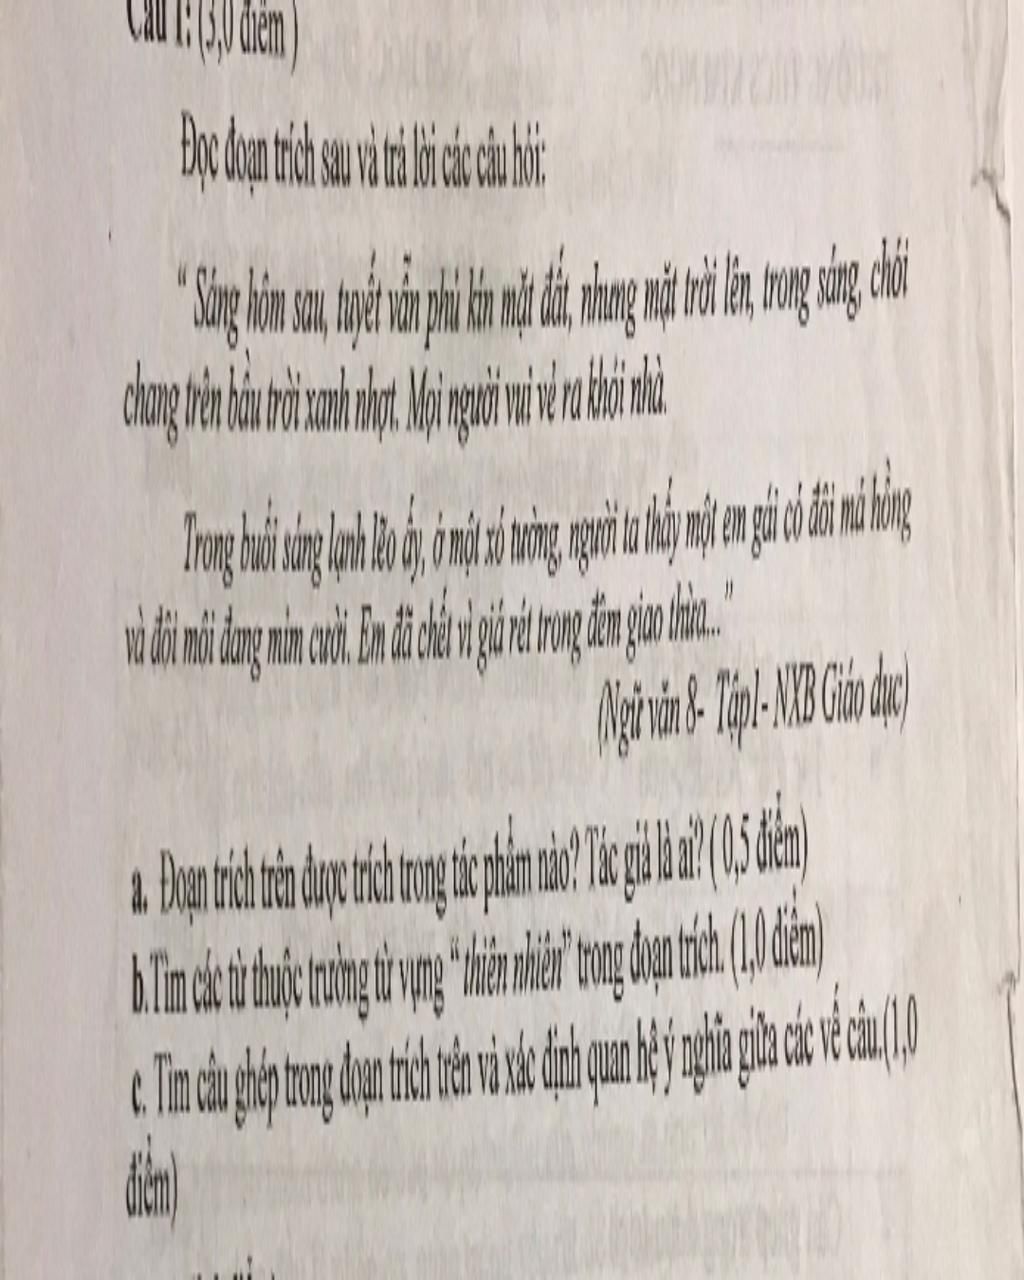 Câu 1: (3,0 điểm )
Đọc đoạn trích sau và trả lời các câu hỏi:
“ Sáng hôm sau, tuyết vẫn phủ kín mặt đất, nhưng mặt trời lên, trong sáng, chói
chang trên bầu trời xanh nhợt. Mọi người vui vẻ ra khỏi nhà.
Trong buổi sáng lạnh lẽo ấy, ở một xó tường, người ta thấy một em gái có đôi má hồng
và đôi môi đang mỉm cười. Em đã chết vì giá rét trong đêm giao thừa...”
(Ngữ văn 8- Tập1- NXB Giáo dục)
a. Đoạn trích trên được trích trong tác phẩm nào? Tác giả là ai? ( 0,5 điểm)
b.Tìm các từ thuộc trường từ vựng “ thiên nhiên” trong đoạn trích. (1,0 điểm)
c. Tìm câu ghép trong đoạn trích trên và xác định quan hệ ý nghĩa giữa các vế câu.(1,0
điểm)